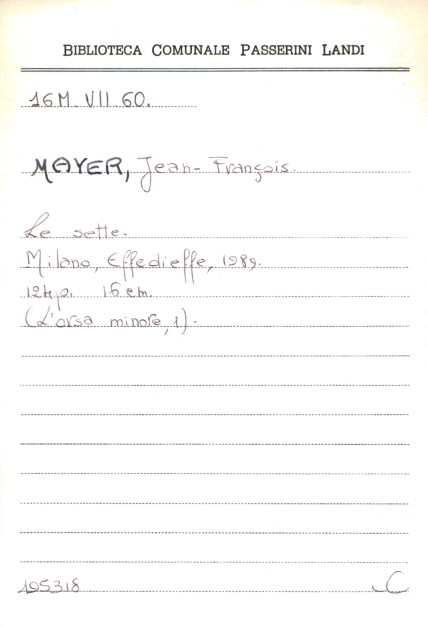 BIBLIOTECA COMUNALE PASSERINI LANDI
16M. VII 60.
MAYER, Jean-François.
Le sette.
Milano, Effedieffe, 1989.
124p. 16 cm.
(L'orsa minore, 1).
195318 C